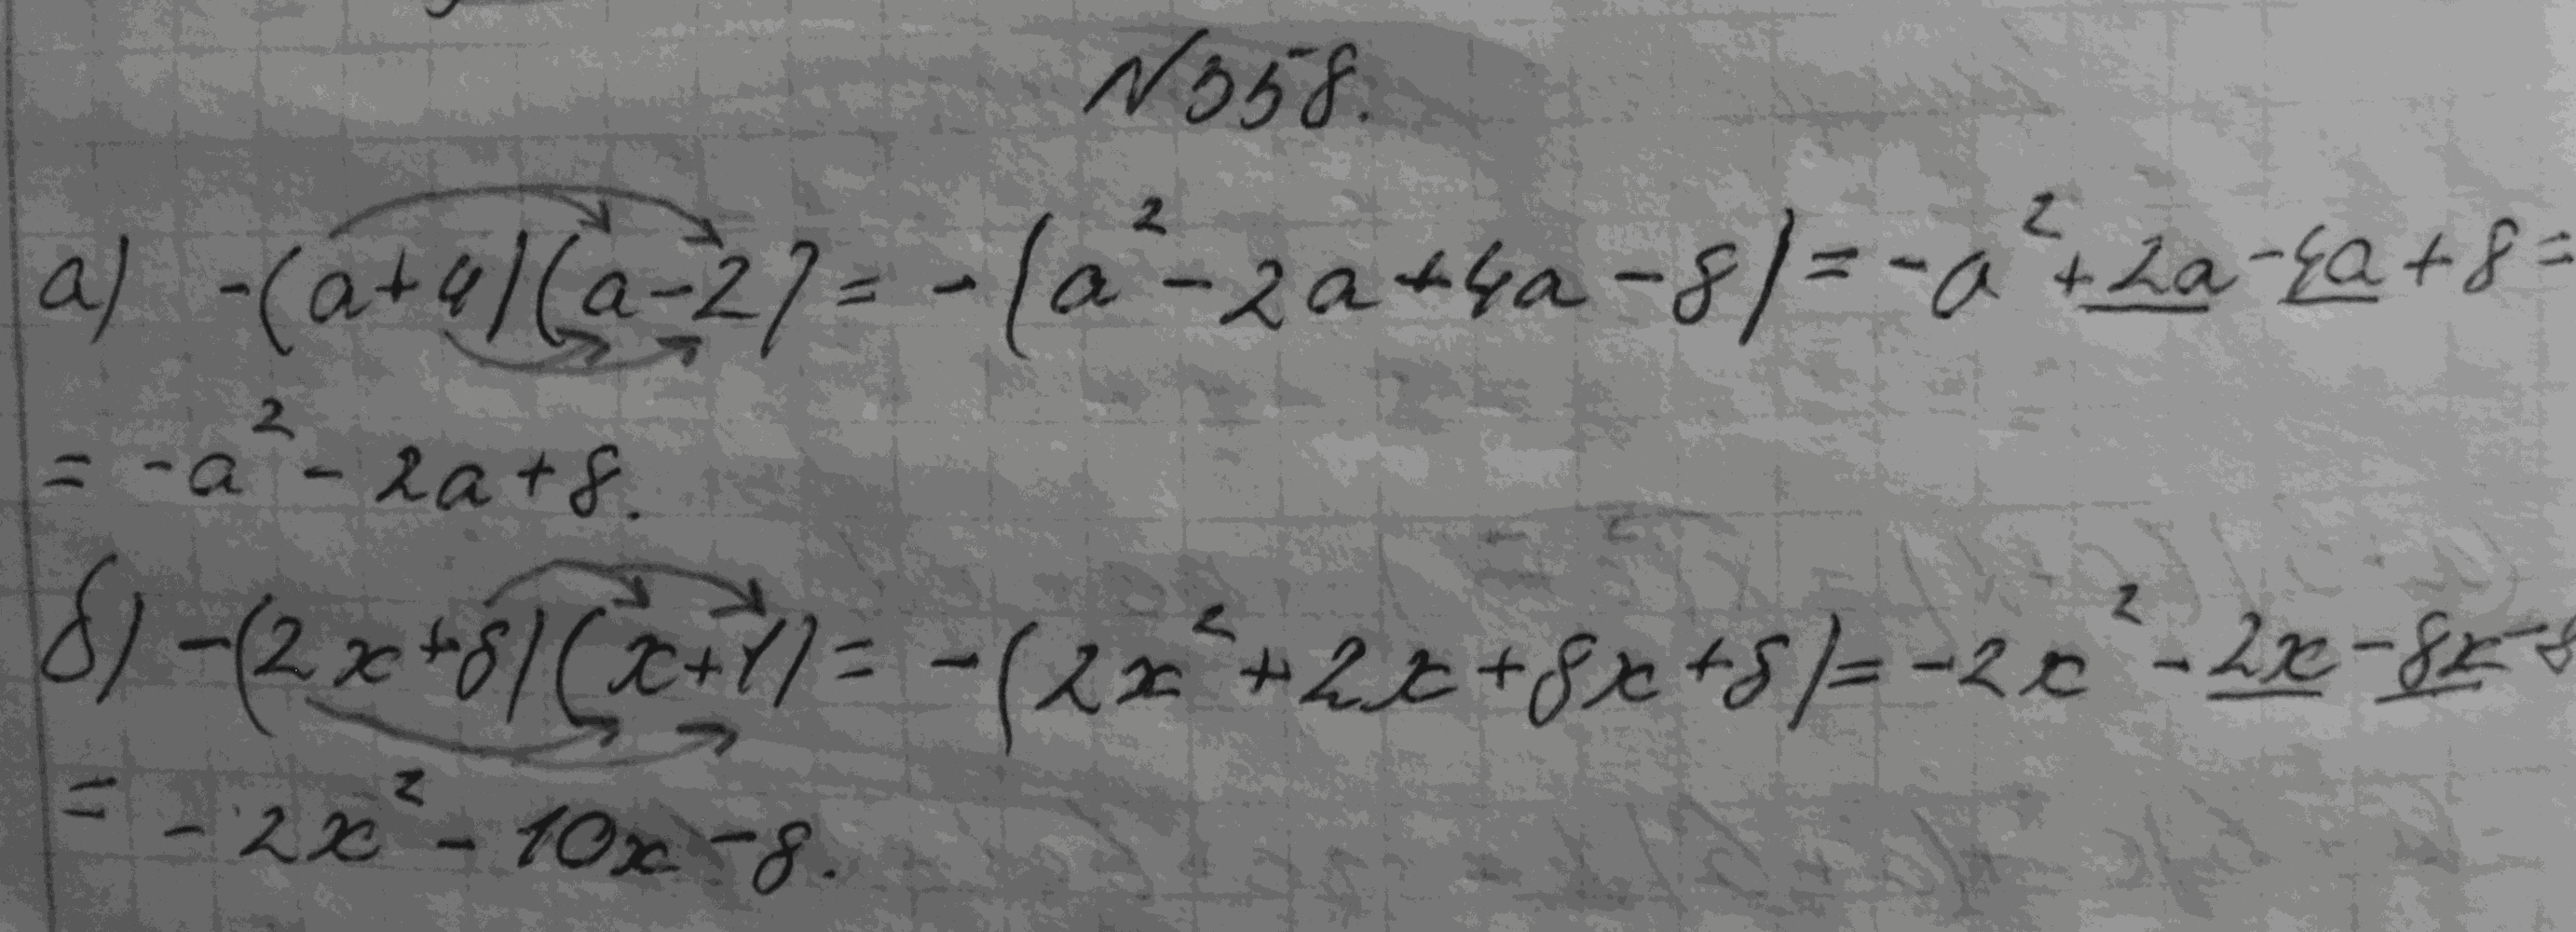 №358.
а) -(a+4)(a-2) = -(a²-2a+4a-8) = -a²+2a-4a+8=
= -a²-2a+8.
б) -(2x+8)(x+1) = -(2x²+2x+8x+8) = -2x²-2x-8x-8
= -2x²-10x-8.